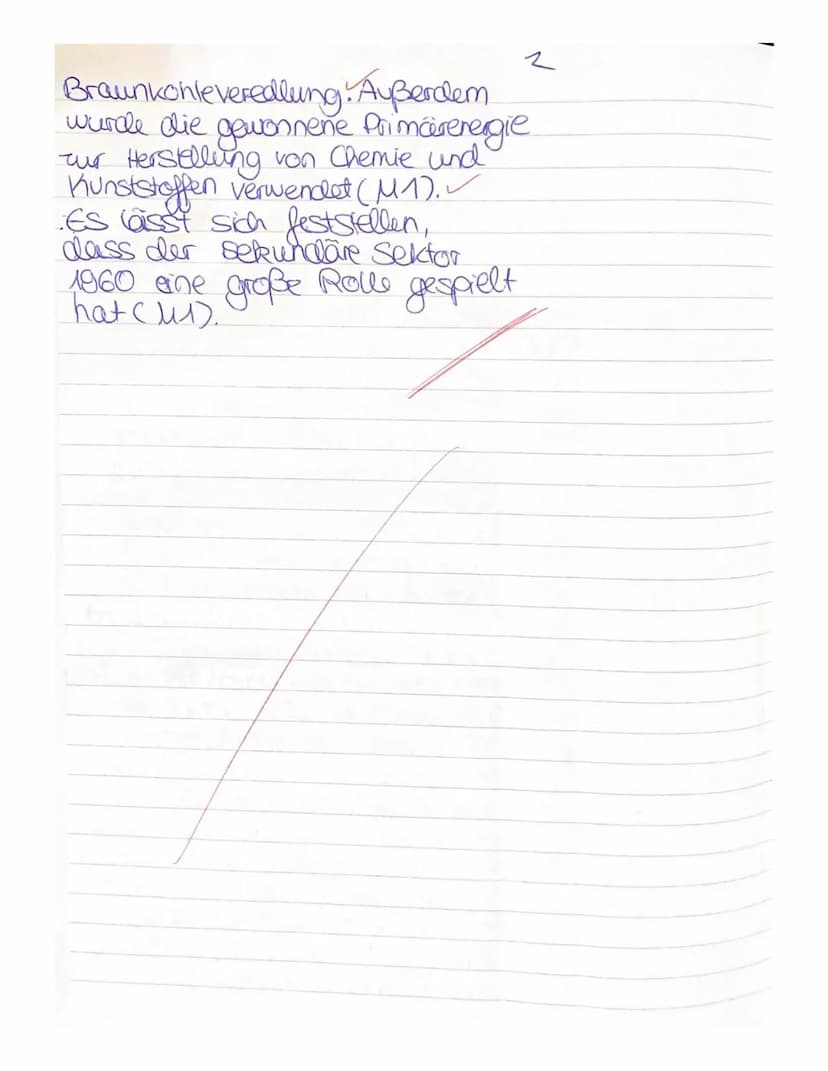 2
Braunkohleveredlung. Außerdem
wurde die gewonnene Primärenergie
zur Herstellung von Chemie und
Kunststoffen verwendet (M1).
Es lässt sich feststellen,
dass der sekundäre Sektor
1960 eine große Rolle gespielt
hat (M1).